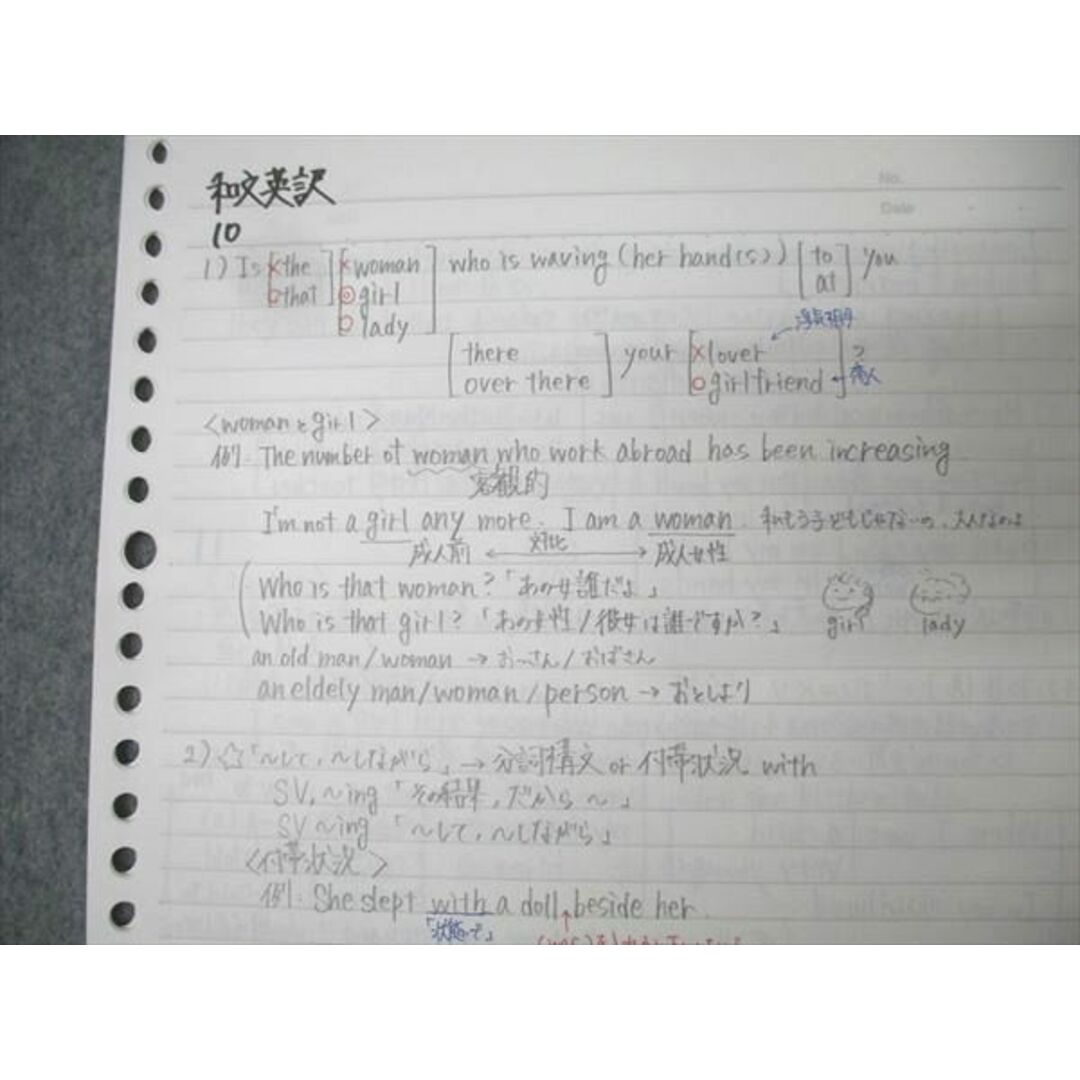 和文英訳
No.
Date
10
1) Is [×the ○that] [×woman ◎girl ○lady] who is waving (her hand(s)) [to at] you
浮気相手
[there over there] your [×lover ○girlfriend] ?
恋人
<womanとgirl>
例. The number of woman who work abroad has been increasing.
客観的
I'm not a girl any more. I am a woman. 私もう子どもじゃないの、大人なのよ
成人前 ←対比→ 成人女性
Who is that woman? 「あの女誰だよ」
Who is that girl? 「あの女性/彼女は誰ですか?」
girl lady
an old man/woman → おっさん/おばさん
an eldely man/woman/person → おとしより
2) ☆「〜して、〜しながら」→ 分詞構文 or 付帯状況 with
SV, 〜ing 「その結果, だから 〜」
SV 〜ing 「〜して, 〜しながら」
<付帯状況>
例. She slept with a doll beside her.
「状態で」